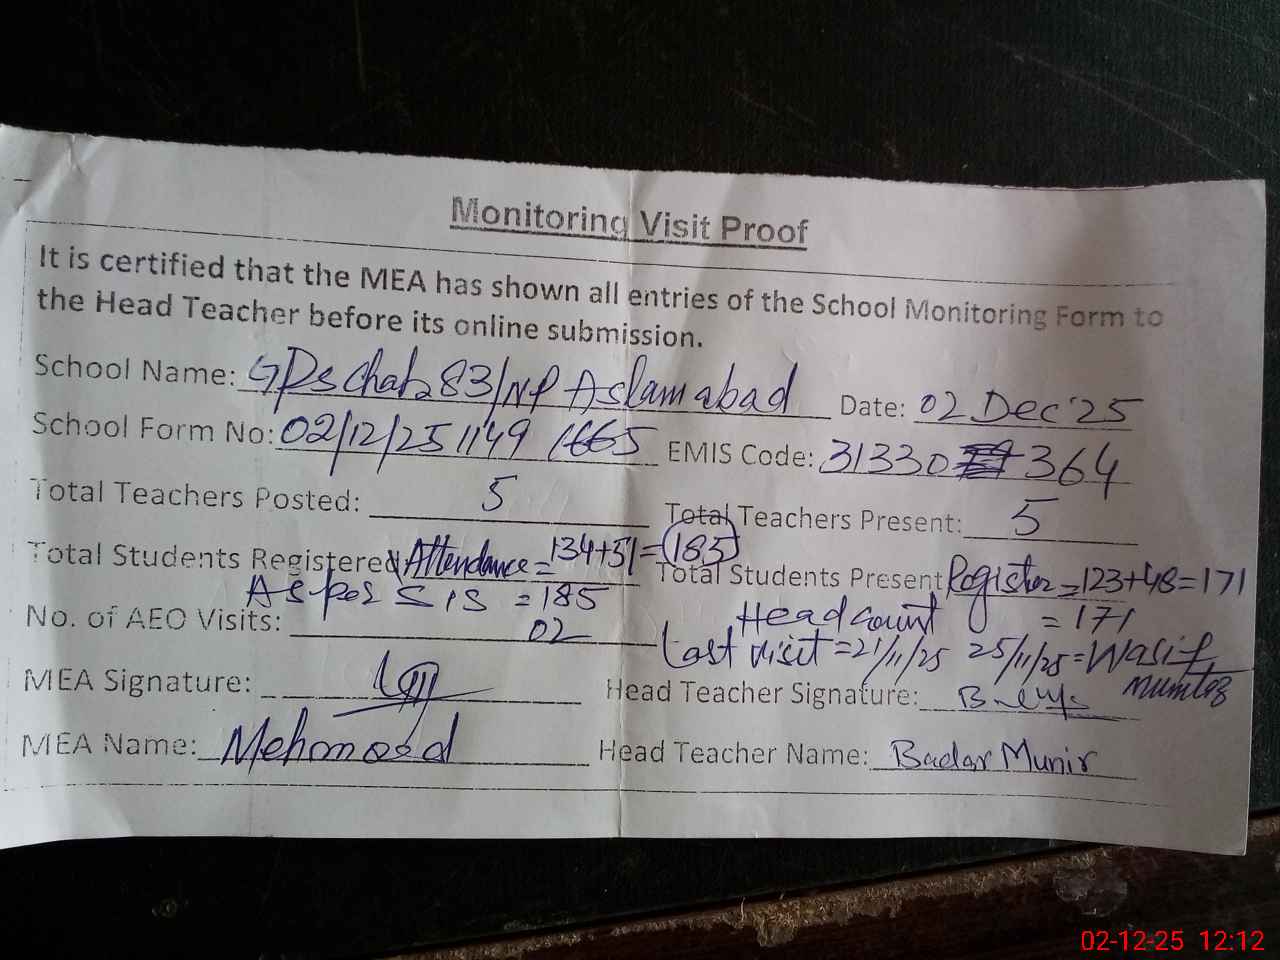 Monitoring Visit Proof
It is certified that the MEA has shown all entries of the School Monitoring Form to
the Head Teacher before its online submission.
School Name: GPS Chak 83/NP Aslamabad Date: 02 Dec'25
School Form No: 02/12/25 1149 1665 EMIS Code: 31330 364
Total Teachers Posted: 5 Total Teachers Present: 5
Total Students Registered Attendance = 134+51 = 185 Total Students Present Register = 123+48 = 171
As per SIS = 185 Head count = 171
No. of AEO Visits: 02 Last visit = 21/11/25 25/11/25 = Wasif Mumtaz
MEA Signature: Head Teacher Signature:
MEA Name: Mehmood Head Teacher Name: Badar Munir
02-12-25 12:12